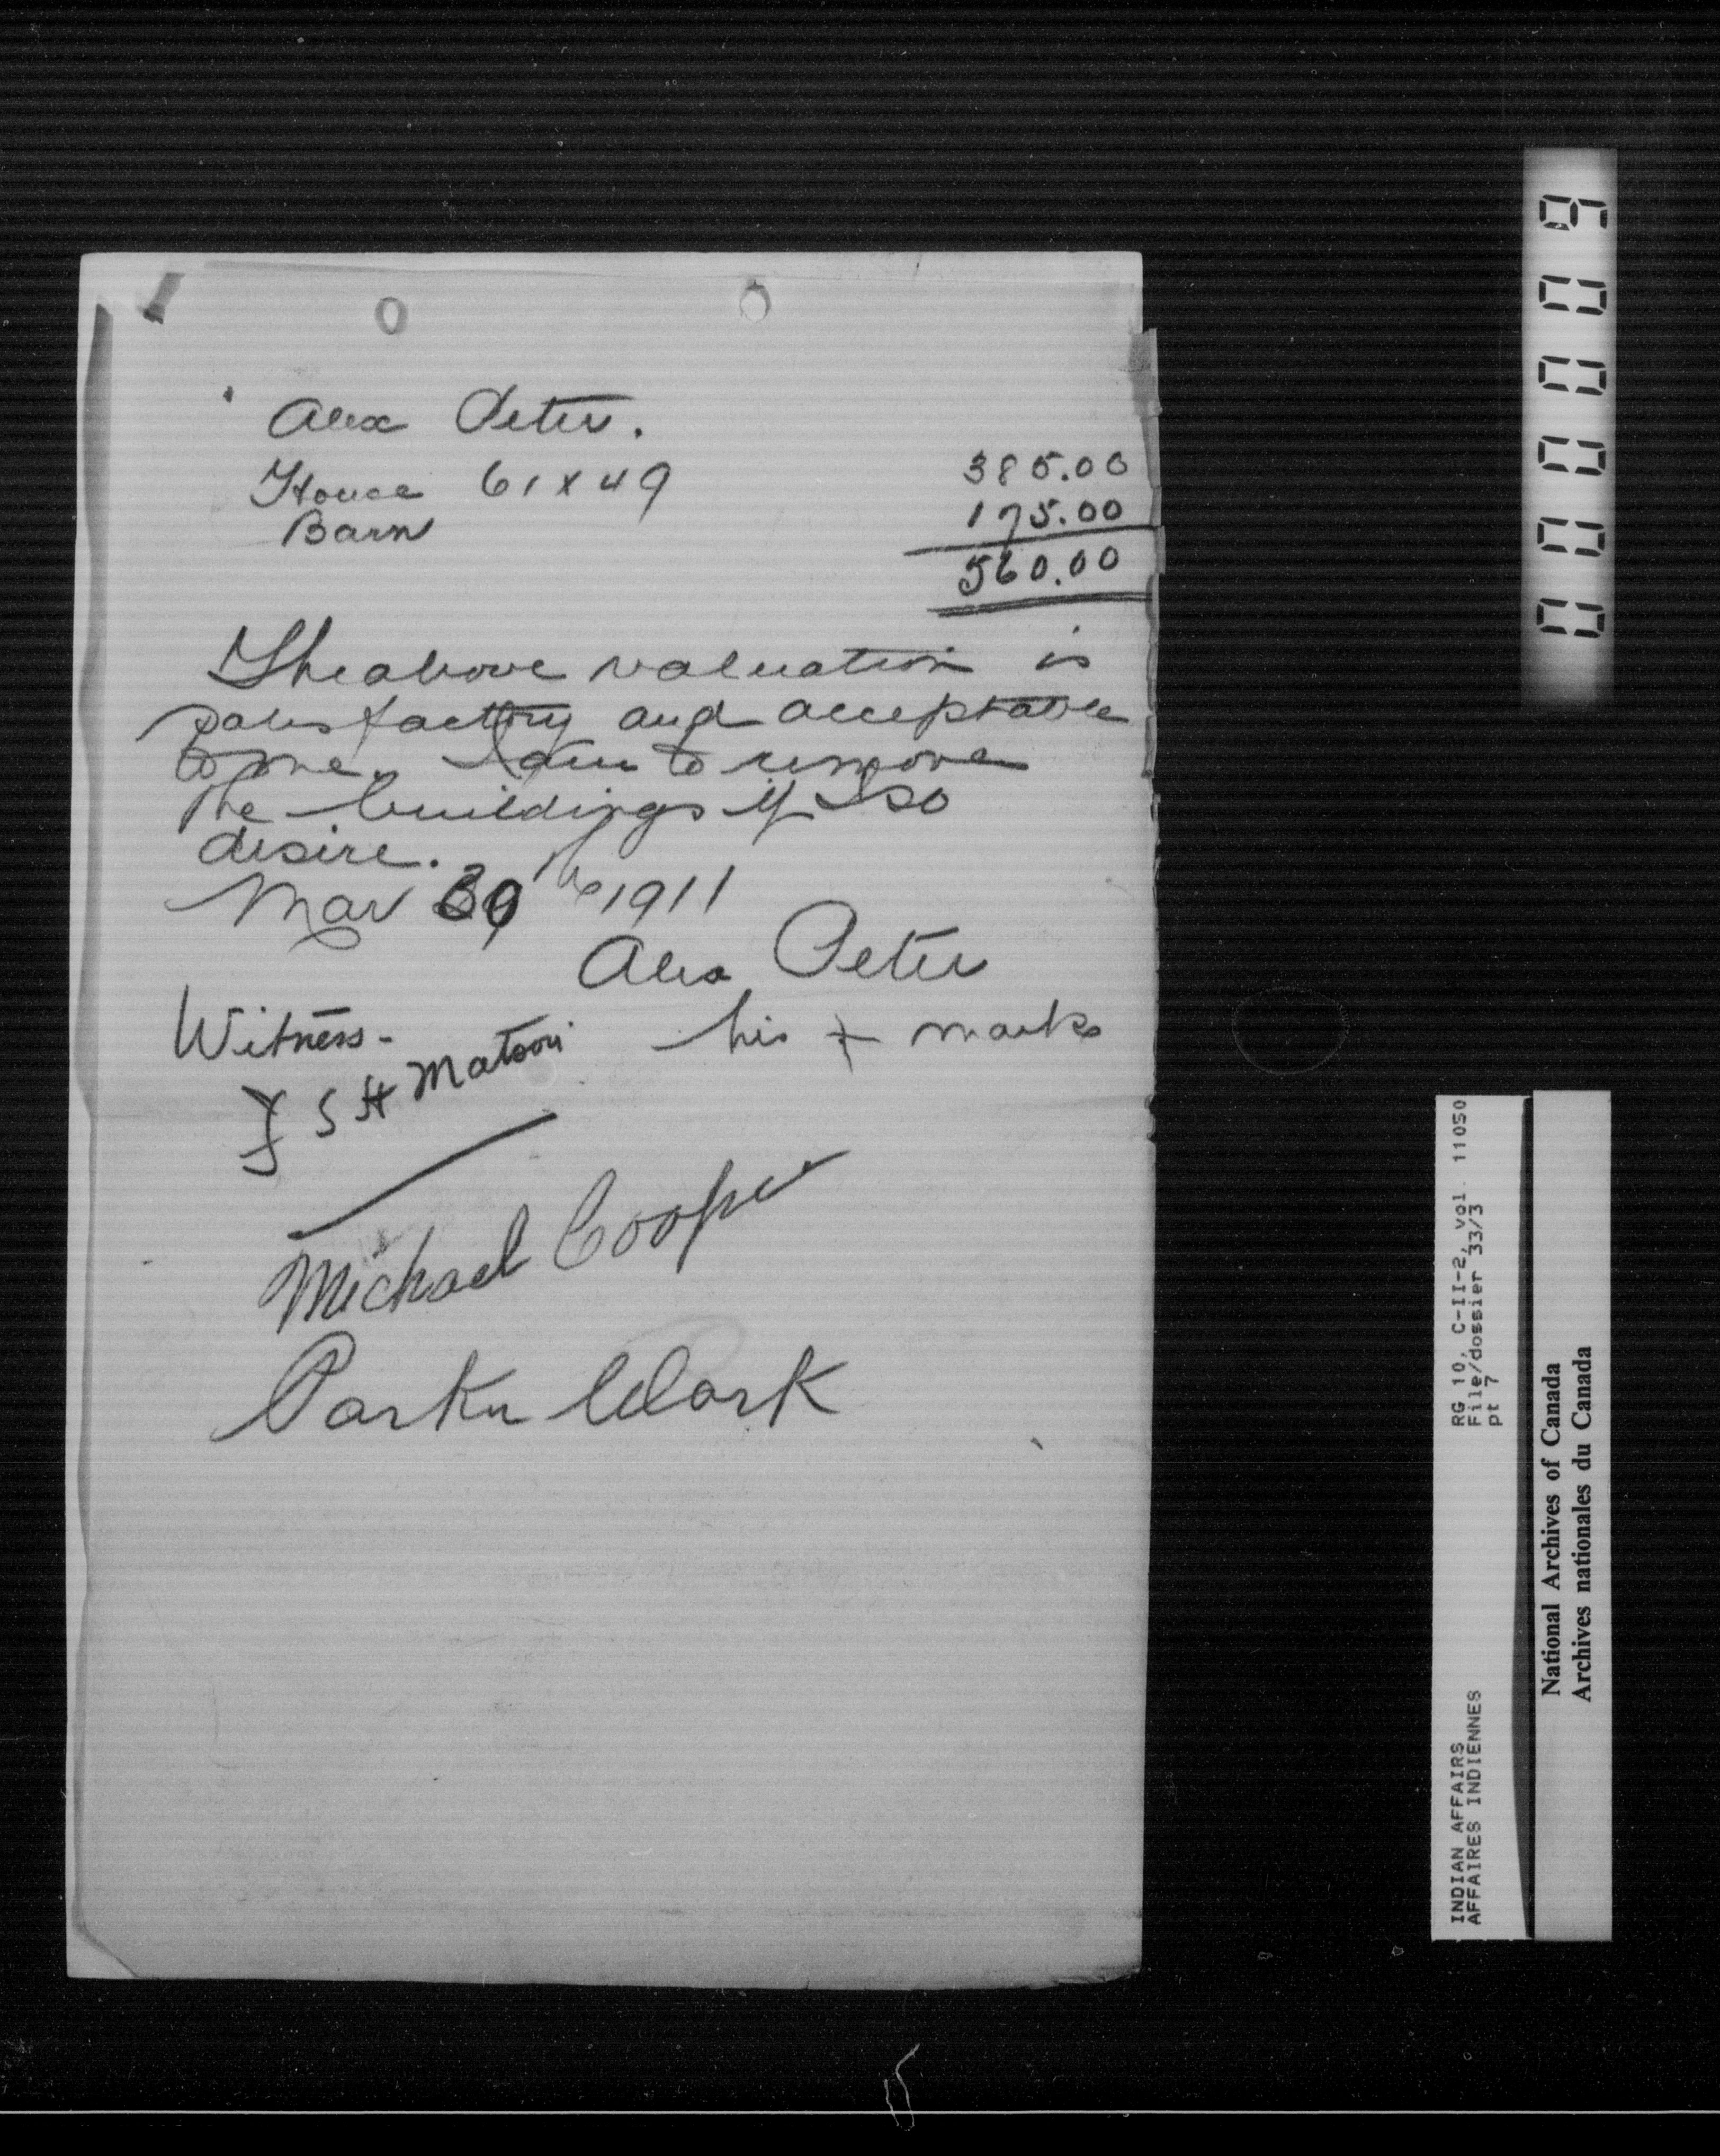 Alex Peter.
House 61 x 49 385.00
Barn 175.00
560.00
The above valuation is
satisfactory and acceptable
to me. I am to remove
the buildings if I so
desire.
Mar 30th 1911
Alex Peter
his + mark
Witness-
S H Matson
Michael Cooper
Parker Clark
000009
RG 10, C-II-2, vol. 11050
File/dossier 33/3
pt 7
INDIAN AFFAIRS
AFFAIRES INDIENNES
National Archives of Canada
Archives nationales du Canada